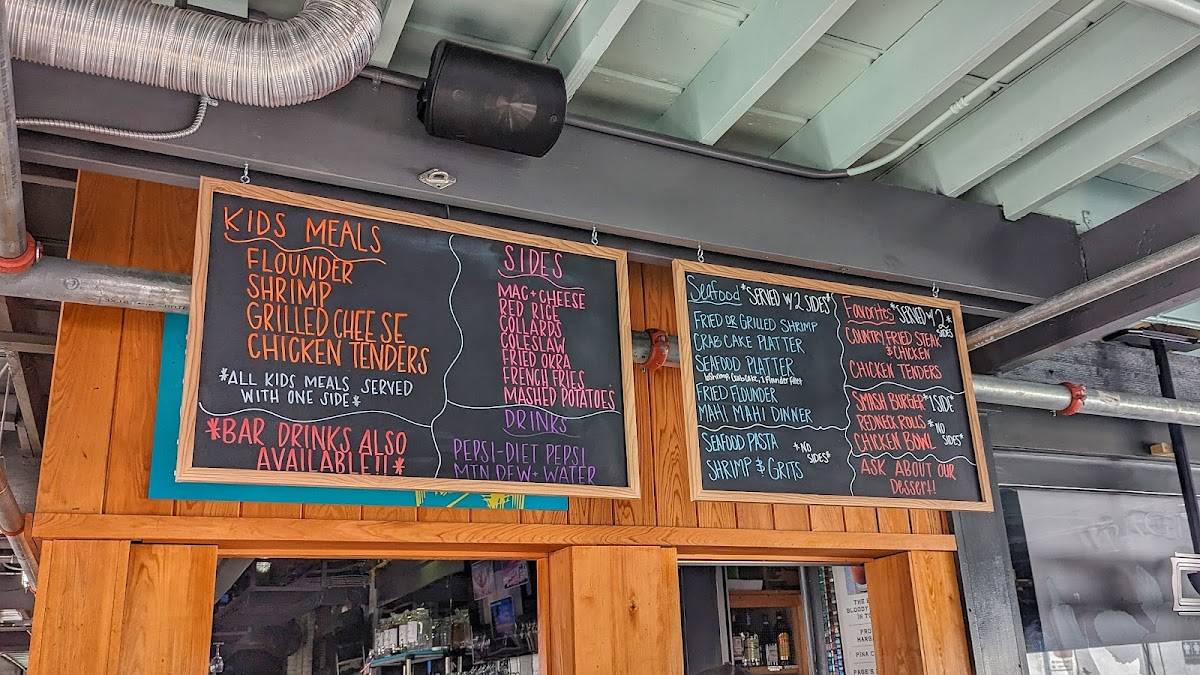 KIDS MEALS
FLOUNDER
SHRIMP
GRILLED CHEESE
CHICKEN TENDERS
*ALL KIDS MEALS SERVED
WITH ONE SIDE*
*BAR DRINKS ALSO
AVAILABLE!!*
SIDES
MAC + CHEESE
RED RICE
COLLARDS
COLESLAW
FRIED OKRA
FRENCH FRIES
MASHED POTATOES
DRINKS
PEPSI-DIET PEPSI
MTN DEW + WATER
Seafood *SERVED W/ 2 SIDES*
FRIED OR GRILLED SHRIMP
CRAB CAKE PLATTER
SEAFOOD PLATTER
FRIED FLOUNDER
MAHI MAHI DINNER
SEAFOOD PASTA
SHRIMP & GRITS
*NO
SIDES*
Favorites *SERVED W/ 2
SIDES*
COUNTRY FRIED STEAK
& CHICKEN
CHICKEN TENDERS
SMASH BURGER *1 SIDE
REDNECK ROLLS
CHICKEN BOWL
*NO
SIDES*
ASK ABOUT OUR
Dessert!